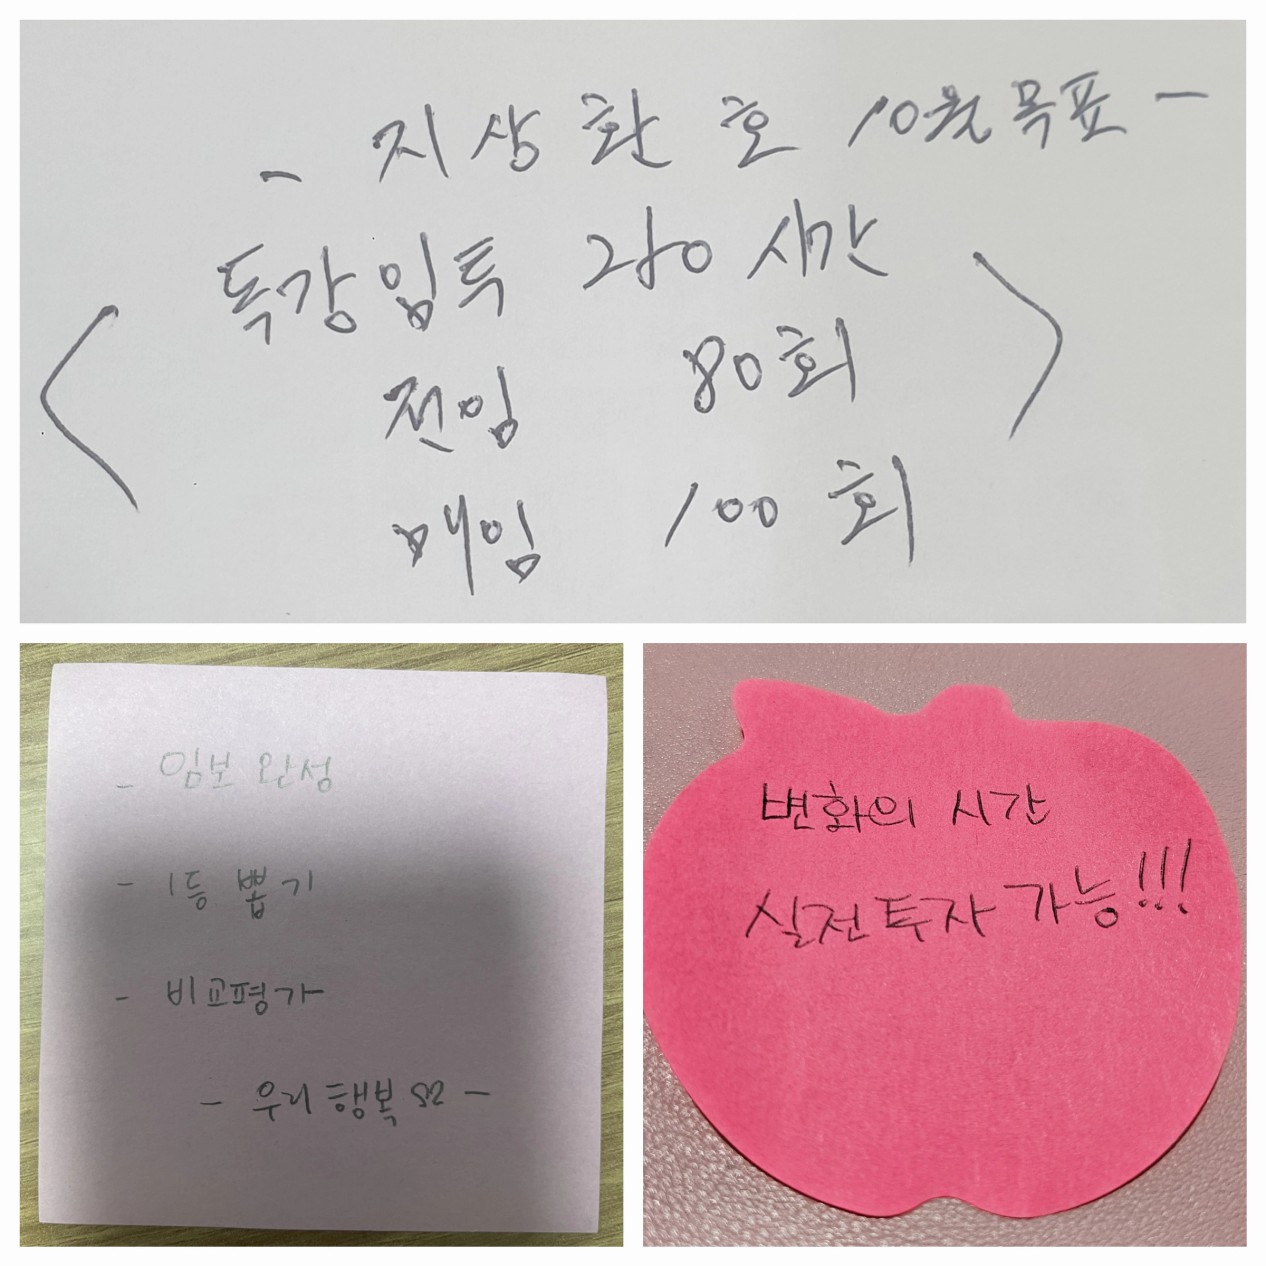 - 지상환호 10월 목표 -
독강임투 210시간
전임 80회
매임 100회
- 임보 완성
- 1등 뽑기
- 비교평가
- 우리 행복 -
변화의 시간
실전투자 가능!!!